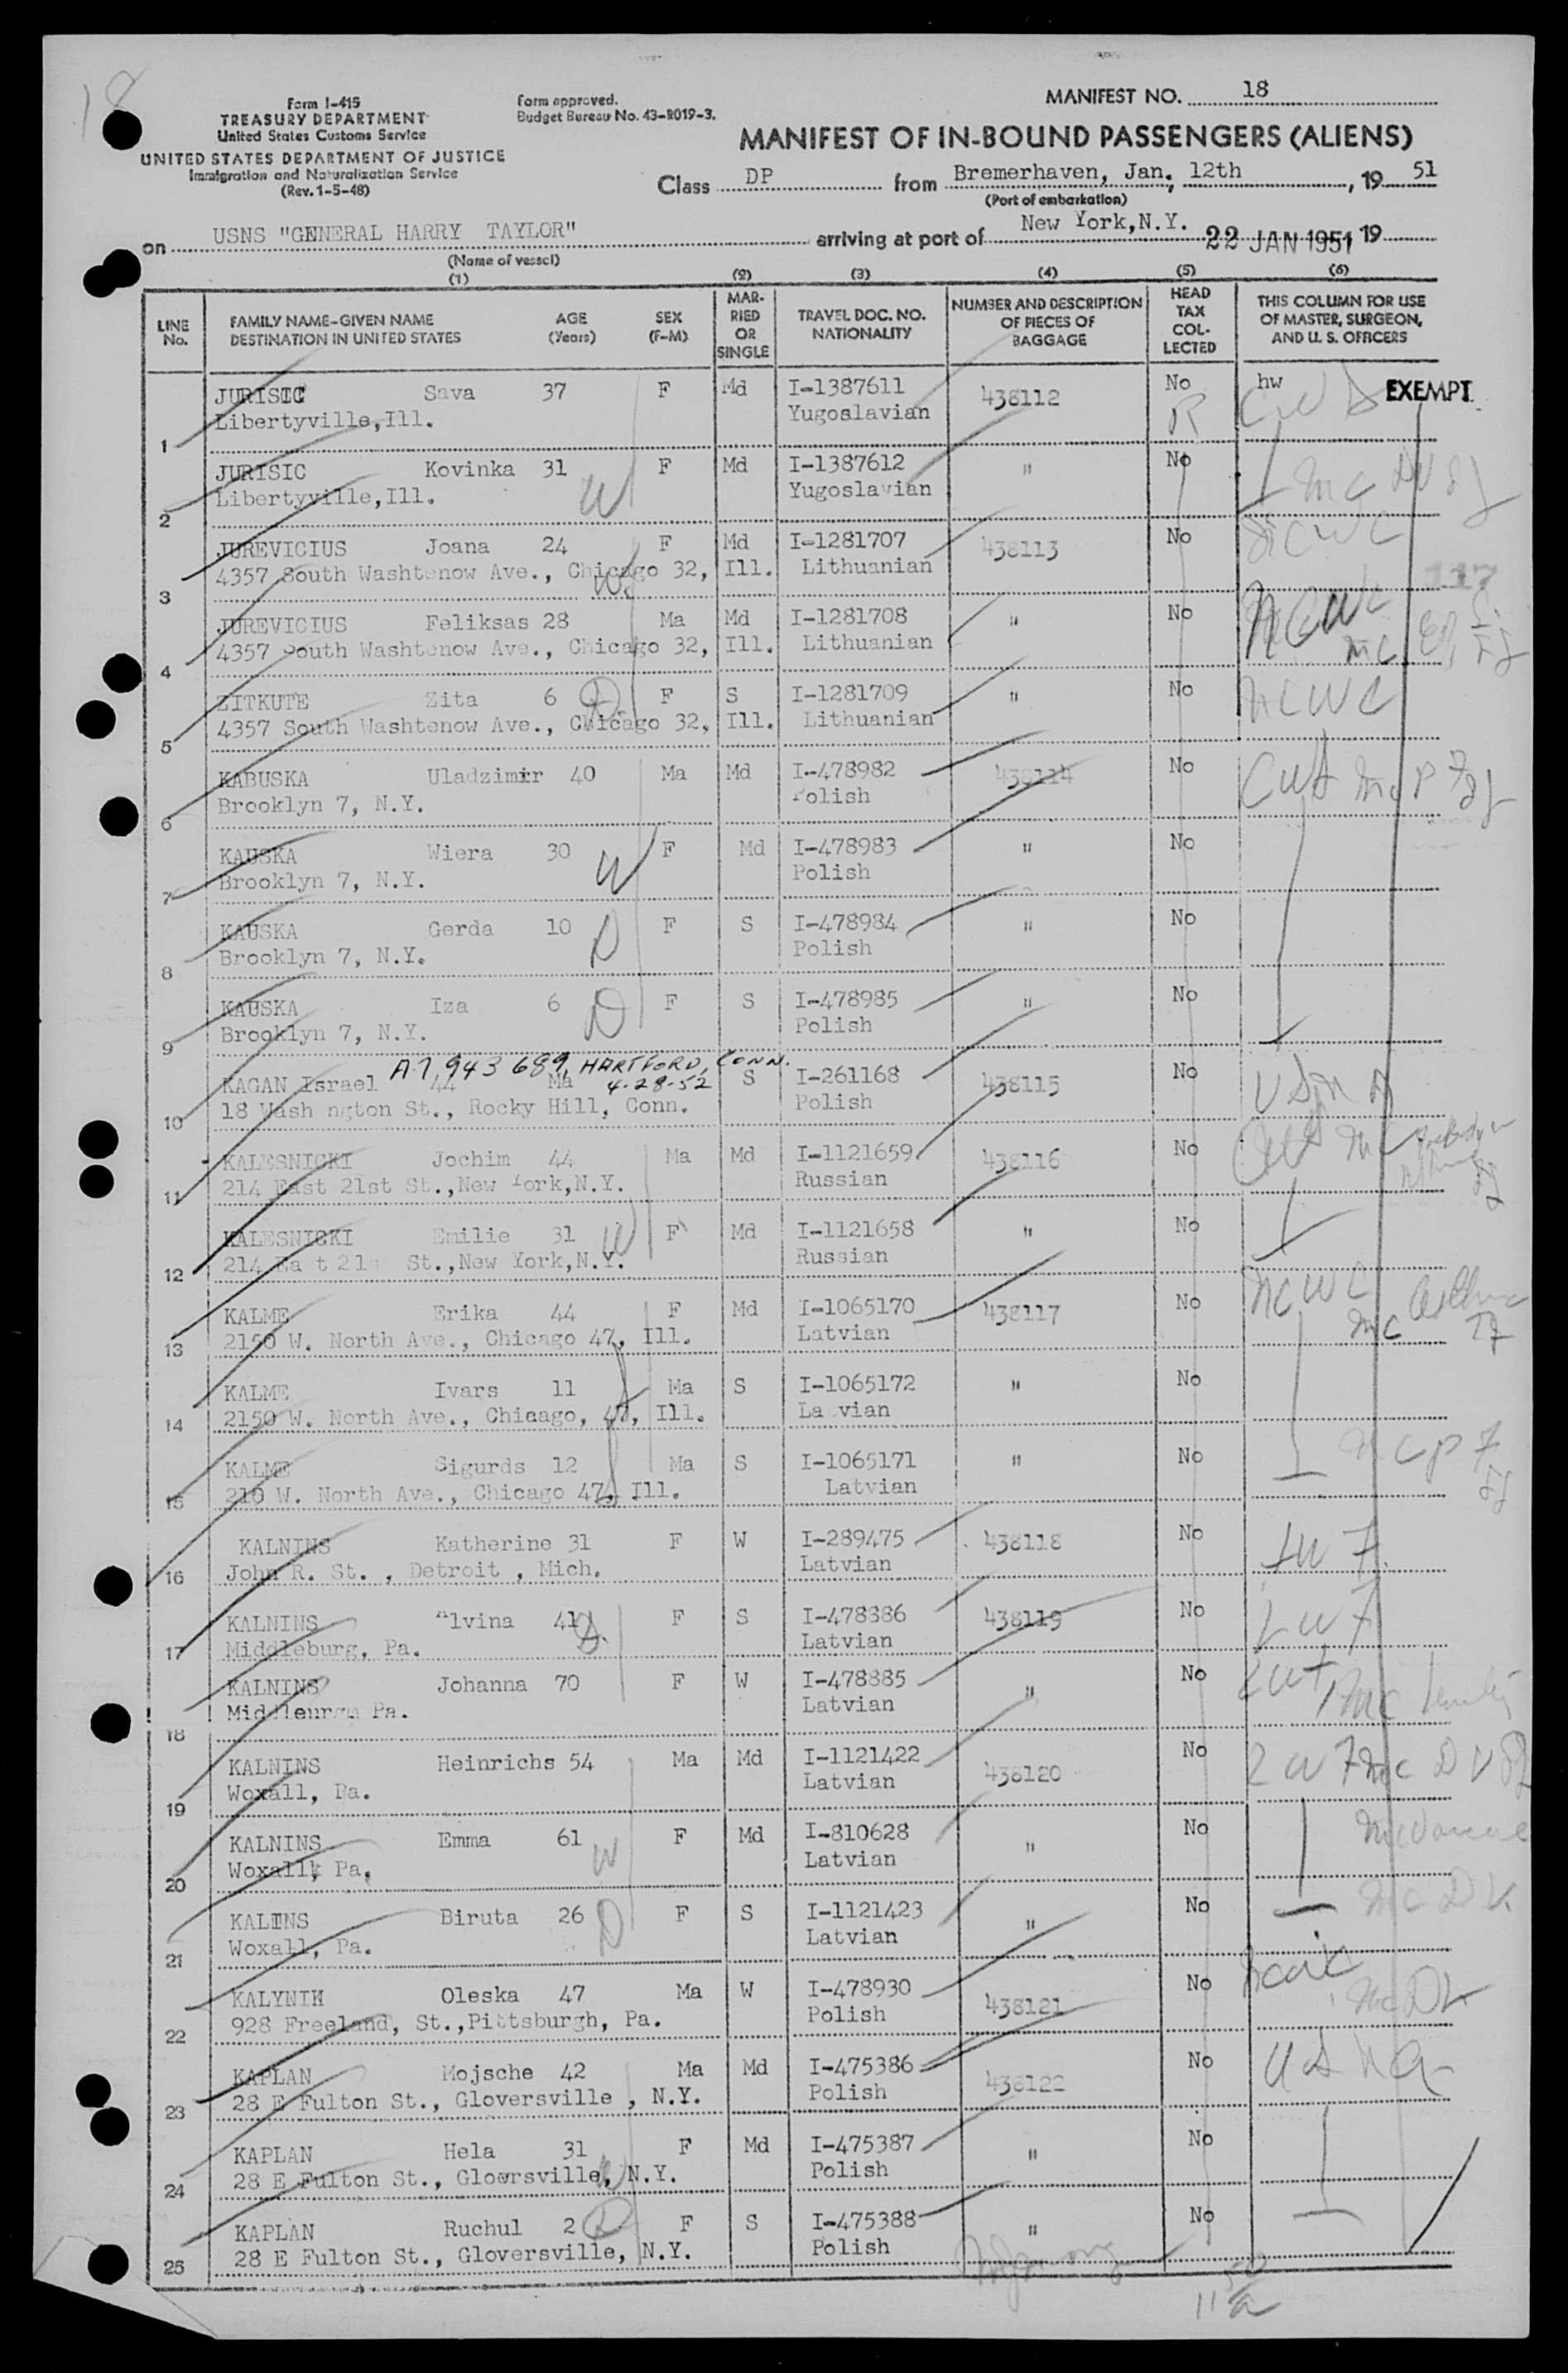 18
Form I-415
TREASURY DEPARTMENT
United States Customs Service
UNITED STATES DEPARTMENT OF JUSTICE
Immigration and Naturalization Service
(Rev. 1-5-48)
Form approved.
Budget Bureau No. 43-R019-3.
MANIFEST NO. 18
MANIFEST OF IN-BOUND PASSENGERS (ALIENS)
Class DP from Bremerhaven, Jan. 12th, 19 51
(Port of embarkation)
on USNS "GENERAL HARRY TAYLOR" arriving at port of New York,N.Y. 22 JAN 1951 19
(Name of vessel)
(1) (2) (3) (4) (5) (6)
LINE No. FAMILY NAME-GIVEN NAME DESTINATION IN UNITED STATES AGE (Years) SEX (F-M) MARRIED OR SINGLE TRAVEL DOC. NO. NATIONALITY NUMBER AND DESCRIPTION OF PIECES OF BAGGAGE HEAD TAX COLLECTED THIS COLUMN FOR USE OF MASTER, SURGEON, AND U. S. OFFICERS
JURISIC Sava 37 F Md I-1387611 438112 No hw CWS EXEMPT
1 Libertyville,Ill. Yugoslavian R
JURISIC Kovinka 31 F Md I-1387612 " No
2 Libertyville,Ill. W Yugoslavian
JUREVICIUS Joana 24 F Md I-1281707 438113 No NCWC
3 4357 South Washtenow Ave., Chicago 32, Ill. Lithuanian W
JUREVICIUS Feliksas 28 Ma Md I-1281708 " No NCWC 117
4 4357 South Washtenow Ave., Chicago 32, Ill. Lithuanian MC
ZITKUTE Zita 6 D F S I-1281709 " No NCWC
5 4357 South Washtenow Ave., Chicago 32, Ill. Lithuanian
KABUSKA Uladzimir 40 Ma Md I-478982 438114 No CWS
6 Brooklyn 7, N.Y. Polish
KAUSKA Wiera 30 W F Md I-478983 " No
7 Brooklyn 7, N.Y. Polish
KAUSKA Gerda 10 D F S I-478984 " No
8 Brooklyn 7, N.Y. Polish
KAUSKA Iza 6 D F S I-478985 " No
9 Brooklyn 7, N.Y. Polish
A7,943 689, HARTFORD, CONN.
4-28-52
KAGAN Israel 44 Ma S I-261168 438115 No USNA
10 18 Wash ngton St., Rocky Hill, Conn. Polish
KALESNICKI Jochim 44 Ma Md I-1121659 438116 No
11 214 East 21st St.,New York,N.Y. Russian
KALESNICKI Emilie 31 W F Md I-1121658 " No
12 214 Ea t 21s St.,New York,N.Y. Russian
KALME Erika 44 F Md I-1065170 438117 No NCWC
13 2150 W. North Ave., Chicago 47, Ill. Latvian MC
KALME Ivars 11 Ma S I-1065172 " No
14 2150 W. North Ave., Chicago, 47, Ill. La vian
KALME Sigurds 12 Ma S I-1065171 " No
15 210 W. North Ave., Chicago 47, Ill. Latvian
KALNINS Katherine 31 F W I-289475 438118 No LWF
16 John R. St. , Detroit , Mich. Latvian
KALNINS Alvina 41 F S I-478886 438119 No LWF
17 Middleburg, Pa. Latvian
KALNINS Johanna 70 F W I-478885 " No LWF
18 Middleurg Pa. Latvian
KALNINS Heinrichs 54 Ma Md I-1121422 438120 No LWF
19 Woxall, Pa. Latvian
KALNINS Emma 61 W F Md I-810628 " No
20 Woxallk Pa. Latvian
KALINS Biruta 26 D F S I-1121423 " No
21 Woxall, Pa. Latvian
KALYNIK Oleska 47 Ma W I-478930 438121 No NCWC
22 928 Freeland, St.,Pittsburgh, Pa. Polish
KAPLAN Mojsche 42 Ma Md I-475386 438122 No USNA
23 28 E Fulton St., Gloversville , N.Y. Polish
KAPLAN Hela 31 F Md I-475387 " No
24 28 E Fulton St., Gloersville, N.Y. W Polish
KAPLAN Ruchul 2 D F S I-475388 " No
25 28 E Fulton St., Gloversville, N.Y. Polish